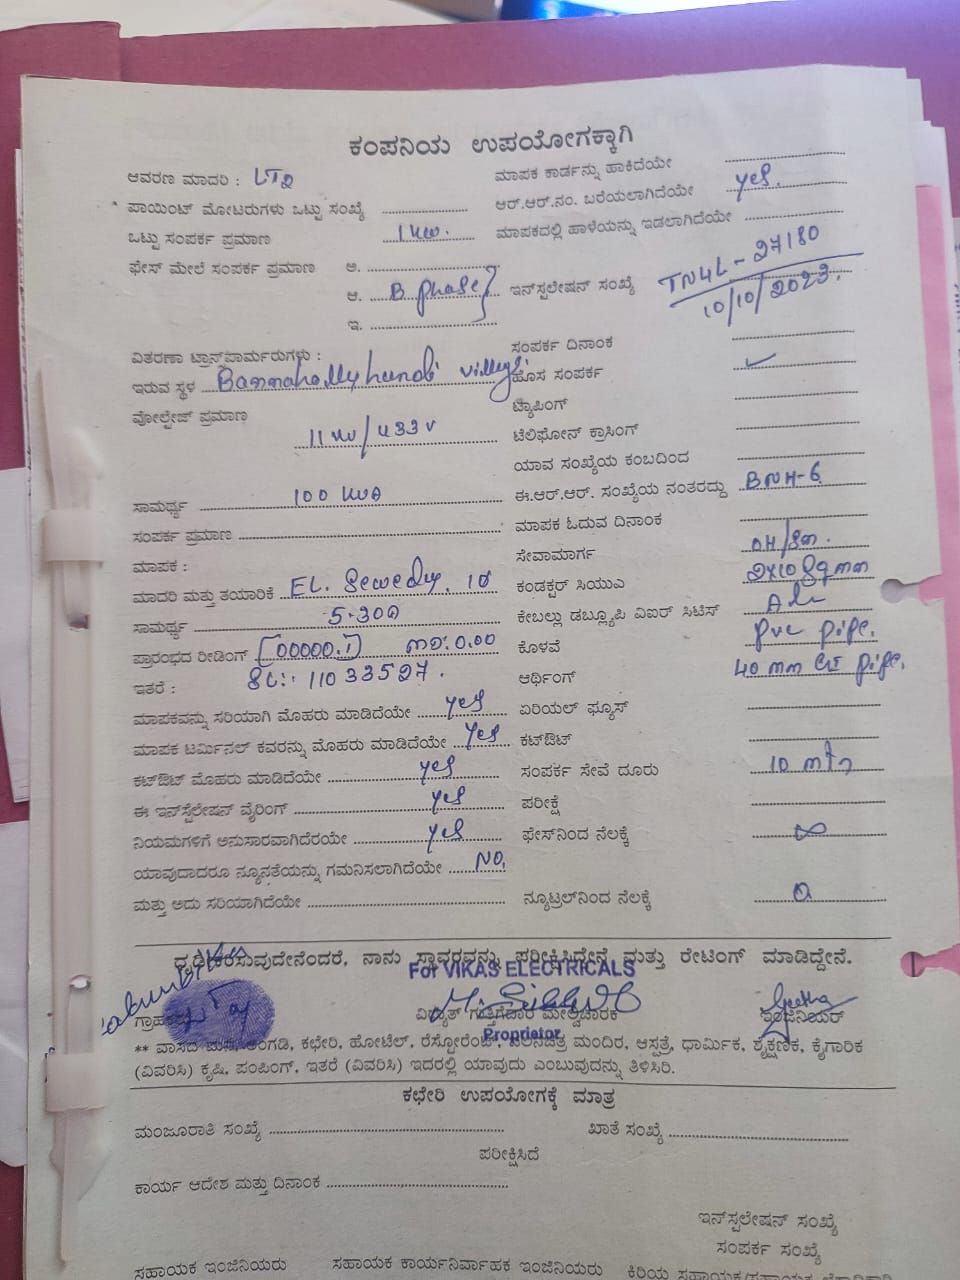 ಕಂಪನಿಯ ಉಪಯೋಗಕ್ಕಾಗಿ
ಆವರಣ ಮಾದರಿ : LT2 ಮಾಪಕ ಕಾರ್ಡನ್ನು ಹಾಕಿದೆಯೇ
ಪಾಯಿಂಟ್ ಮೋಟರುಗಳು ಒಟ್ಟು ಸಂಖ್ಯೆ ಆರ್.ಆರ್.ನಂ. ಬರೆಯಲಾಗಿದೆಯೇ yes.
ಒಟ್ಟು ಸಂಪರ್ಕ ಪ್ರಮಾಣ 1kw. ಮಾಪಕದಲ್ಲಿ ಹಾಳೆಯನ್ನು ಇಡಲಾಗಿದೆಯೇ
ಫೇಸ್ ಮೇಲೆ ಸಂಪರ್ಕ ಪ್ರಮಾಣ ಅ.
ಆ. B phase ಇನ್ಸ್ಟಲೇಷನ್ ಸಂಖ್ಯೆ TN4L-27180
10/10/2023.
ಇ.
ವಿತರಣಾ ಟ್ರಾನ್ಸ್‌ಫಾರ್ಮರುಗಳು : ಸಂಪರ್ಕ ದಿನಾಂಕ
ಇರುವ ಸ್ಥಳ Bannahallyhundi ಹೊಸ ಸಂಪರ್ಕ ✓
ವೋಲ್ಟೇಜ್ ಪ್ರಮಾಣ ಟ್ಯಾಪಿಂಗ್
11 kv/433v ಟೆಲಿಫೋನ್ ಕ್ರಾಸಿಂಗ್
ಯಾವ ಸಂಖ್ಯೆಯ ಕಂಬದಿಂದ
ಸಾಮರ್ಥ್ಯ 100 kva ಈ.ಆರ್.ಆರ್. ಸಂಖ್ಯೆಯ ನಂತರದ್ದು BNH-6
ಸಂಪರ್ಕ ಪ್ರಮಾಣ ಮಾಪಕ ಓದುವ ದಿನಾಂಕ
ಮಾಪಕ : ಸೇವಾಮಾರ್ಗ OH/
ಮಾದರಿ ಮತ್ತು ತಯಾರಿಕೆ EL. Sewedy, 1ø ಕಂಡಕ್ಟರ್ ಸಿಯುಎ 2x10 sqmm
ಸಾಮರ್ಥ್ಯ 5-30A ಕೇಬಲ್ಲು ಡಬ್ಲ್ಯೂಪಿ ವಿಐಆರ್ ಸಿಟಿಸ್
ಪ್ರಾರಂಭದ ರೀಡಿಂಗ್ [00000.1] MD:0.00 ಕೊಳವೆ Pvc pipe.
ಇತರೆ : SL:- 11033527. ಅರ್ಥಿಂಗ್ 40 mm GI pipe.
ಮಾಪಕವನ್ನು ಸರಿಯಾಗಿ ಮೊಹರು ಮಾಡಿದೆಯೇ yes ಏರಿಯಲ್ ಫ್ಯೂಸ್
ಮಾಪಕ ಟರ್ಮಿನಲ್ ಕವರನ್ನು ಮೊಹರು ಮಾಡಿದೆಯೇ yes ಕಟ್‌ಔಟ್
ಕಟ್‌ಔಟ್ ಮೊಹರು ಮಾಡಿದೆಯೇ yes ಸಂಪರ್ಕ ಸೇವೆ ದೂರು 10 mtr
ಈ ಇನ್ಸ್ಟಲೇಷನ್ ವೈರಿಂಗ್ yes ಪರೀಕ್ಷೆ
ನಿಯಮಗಳಿಗೆ ಅನುಸಾರವಾಗಿದೆರಯೇ yes ಫೇಸ್‌ನಿಂದ ನೆಲಕ್ಕೆ ∞
ಯಾವುದಾದರೂ ನ್ಯೂನತೆಯನ್ನು ಗಮನಿಸಲಾಗಿದೆಯೇ NO,
ಮತ್ತು ಅದು ಸರಿಯಾಗಿದೆಯೇ ನ್ಯೂಟ್ರಲ್‌ನಿಂದ ನೆಲಕ್ಕೆ 0
ದೃಢೀಕರಿಸುವುದೇನೆಂದರೆ, ನಾನು ಸ್ಥಾವರವನ್ನು ಪರೀಕ್ಷಿಸಿದ್ದೇನೆ ಮತ್ತು ರೇಟಿಂಗ್ ಮಾಡಿದ್ದೇನೆ.
For VIKAS ELECTRICALS
ವಿದ್ಯುತ್ ಗುತ್ತಿಗೆದಾರ ಮೇಲ್ವಿಚಾರಕ ಇಂಜಿನಿಯರ್
Geetha
Proprietor
** ವಾಸದ ಮನೆ, ಅಂಗಡಿ, ಕಛೇರಿ, ಹೋಟೆಲ್, ರೆಸ್ಟೋರೆಂಟ್, ಮಂದಿರ, ಆಸ್ಪತ್ರೆ, ಧಾರ್ಮಿಕ, ಶೈಕ್ಷಣಿಕ, ಕೈಗಾರಿಕ
(ವಿವರಿಸಿ) ಕೃಷಿ, ಪಂಪಿಂಗ್, ಇತರೆ (ವಿವರಿಸಿ) ಇದರಲ್ಲಿ ಯಾವುದು ಎಂಬುವುದನ್ನು ತಿಳಿಸಿರಿ.
ಕಛೇರಿ ಉಪಯೋಗಕ್ಕೆ ಮಾತ್ರ
ಮಂಜೂರಾತಿ ಸಂಖ್ಯೆ ಖಾತೆ ಸಂಖ್ಯೆ
ಪರೀಕ್ಷಿಸಿದೆ
ಕಾರ್ಯ ಆದೇಶ ಮತ್ತು ದಿನಾಂಕ
ಇನ್ಸ್ಟಲೇಷನ್ ಸಂಖ್ಯೆ
ಸಂಪರ್ಕ ಸಂಖ್ಯೆ
ಸಹಾಯಕ ಇಂಜಿನಿಯರು ಸಹಾಯಕ ಕಾರ್ಯನಿರ್ವಾಹಕ ಇಂಜಿನಿಯರು